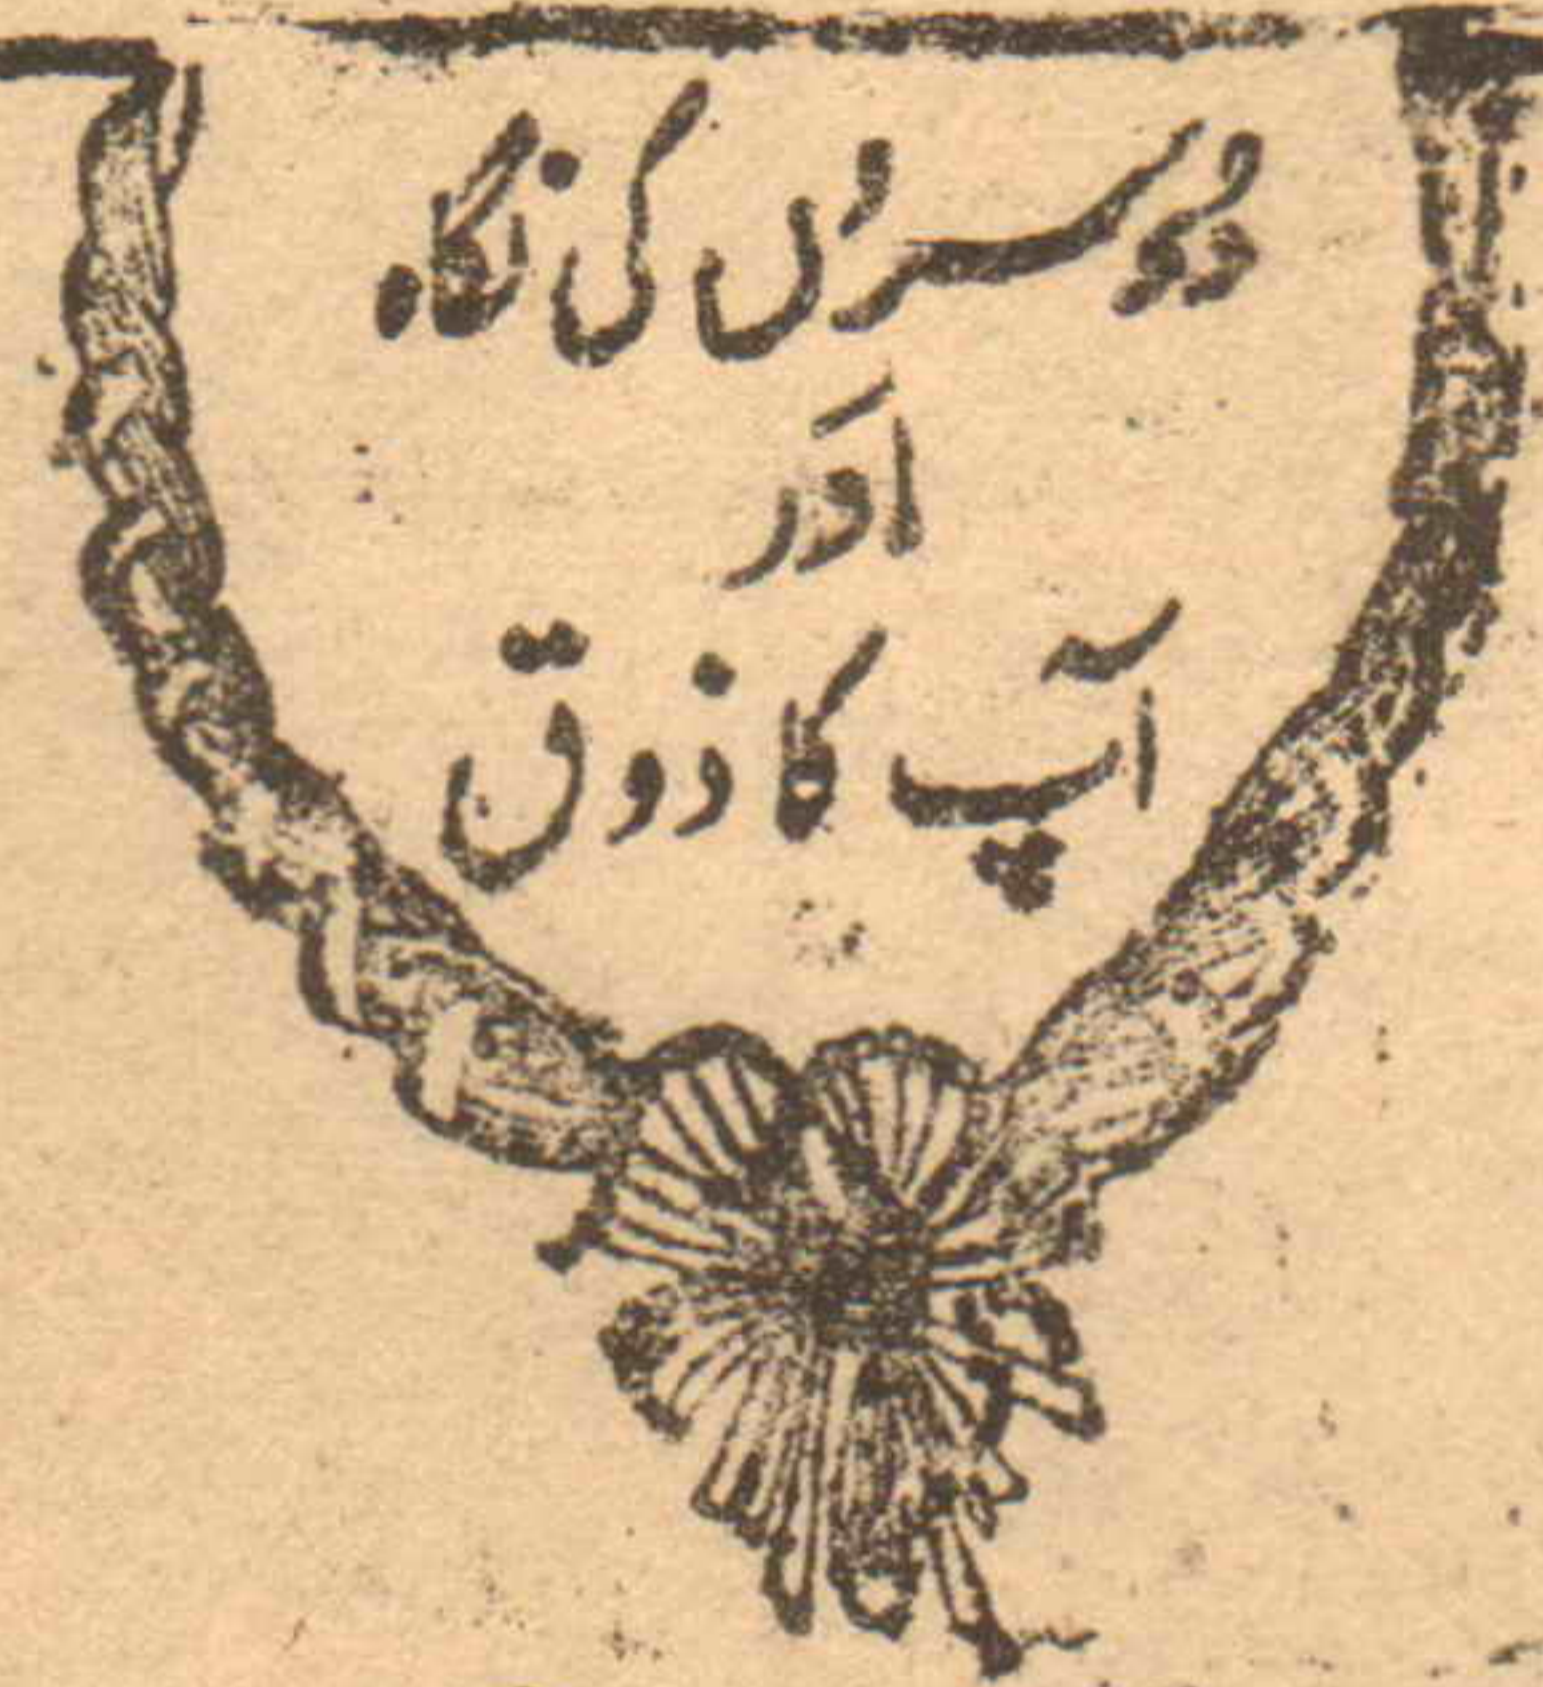 دُوسروں کی نگاہ
اَور
آپ کا ذوق